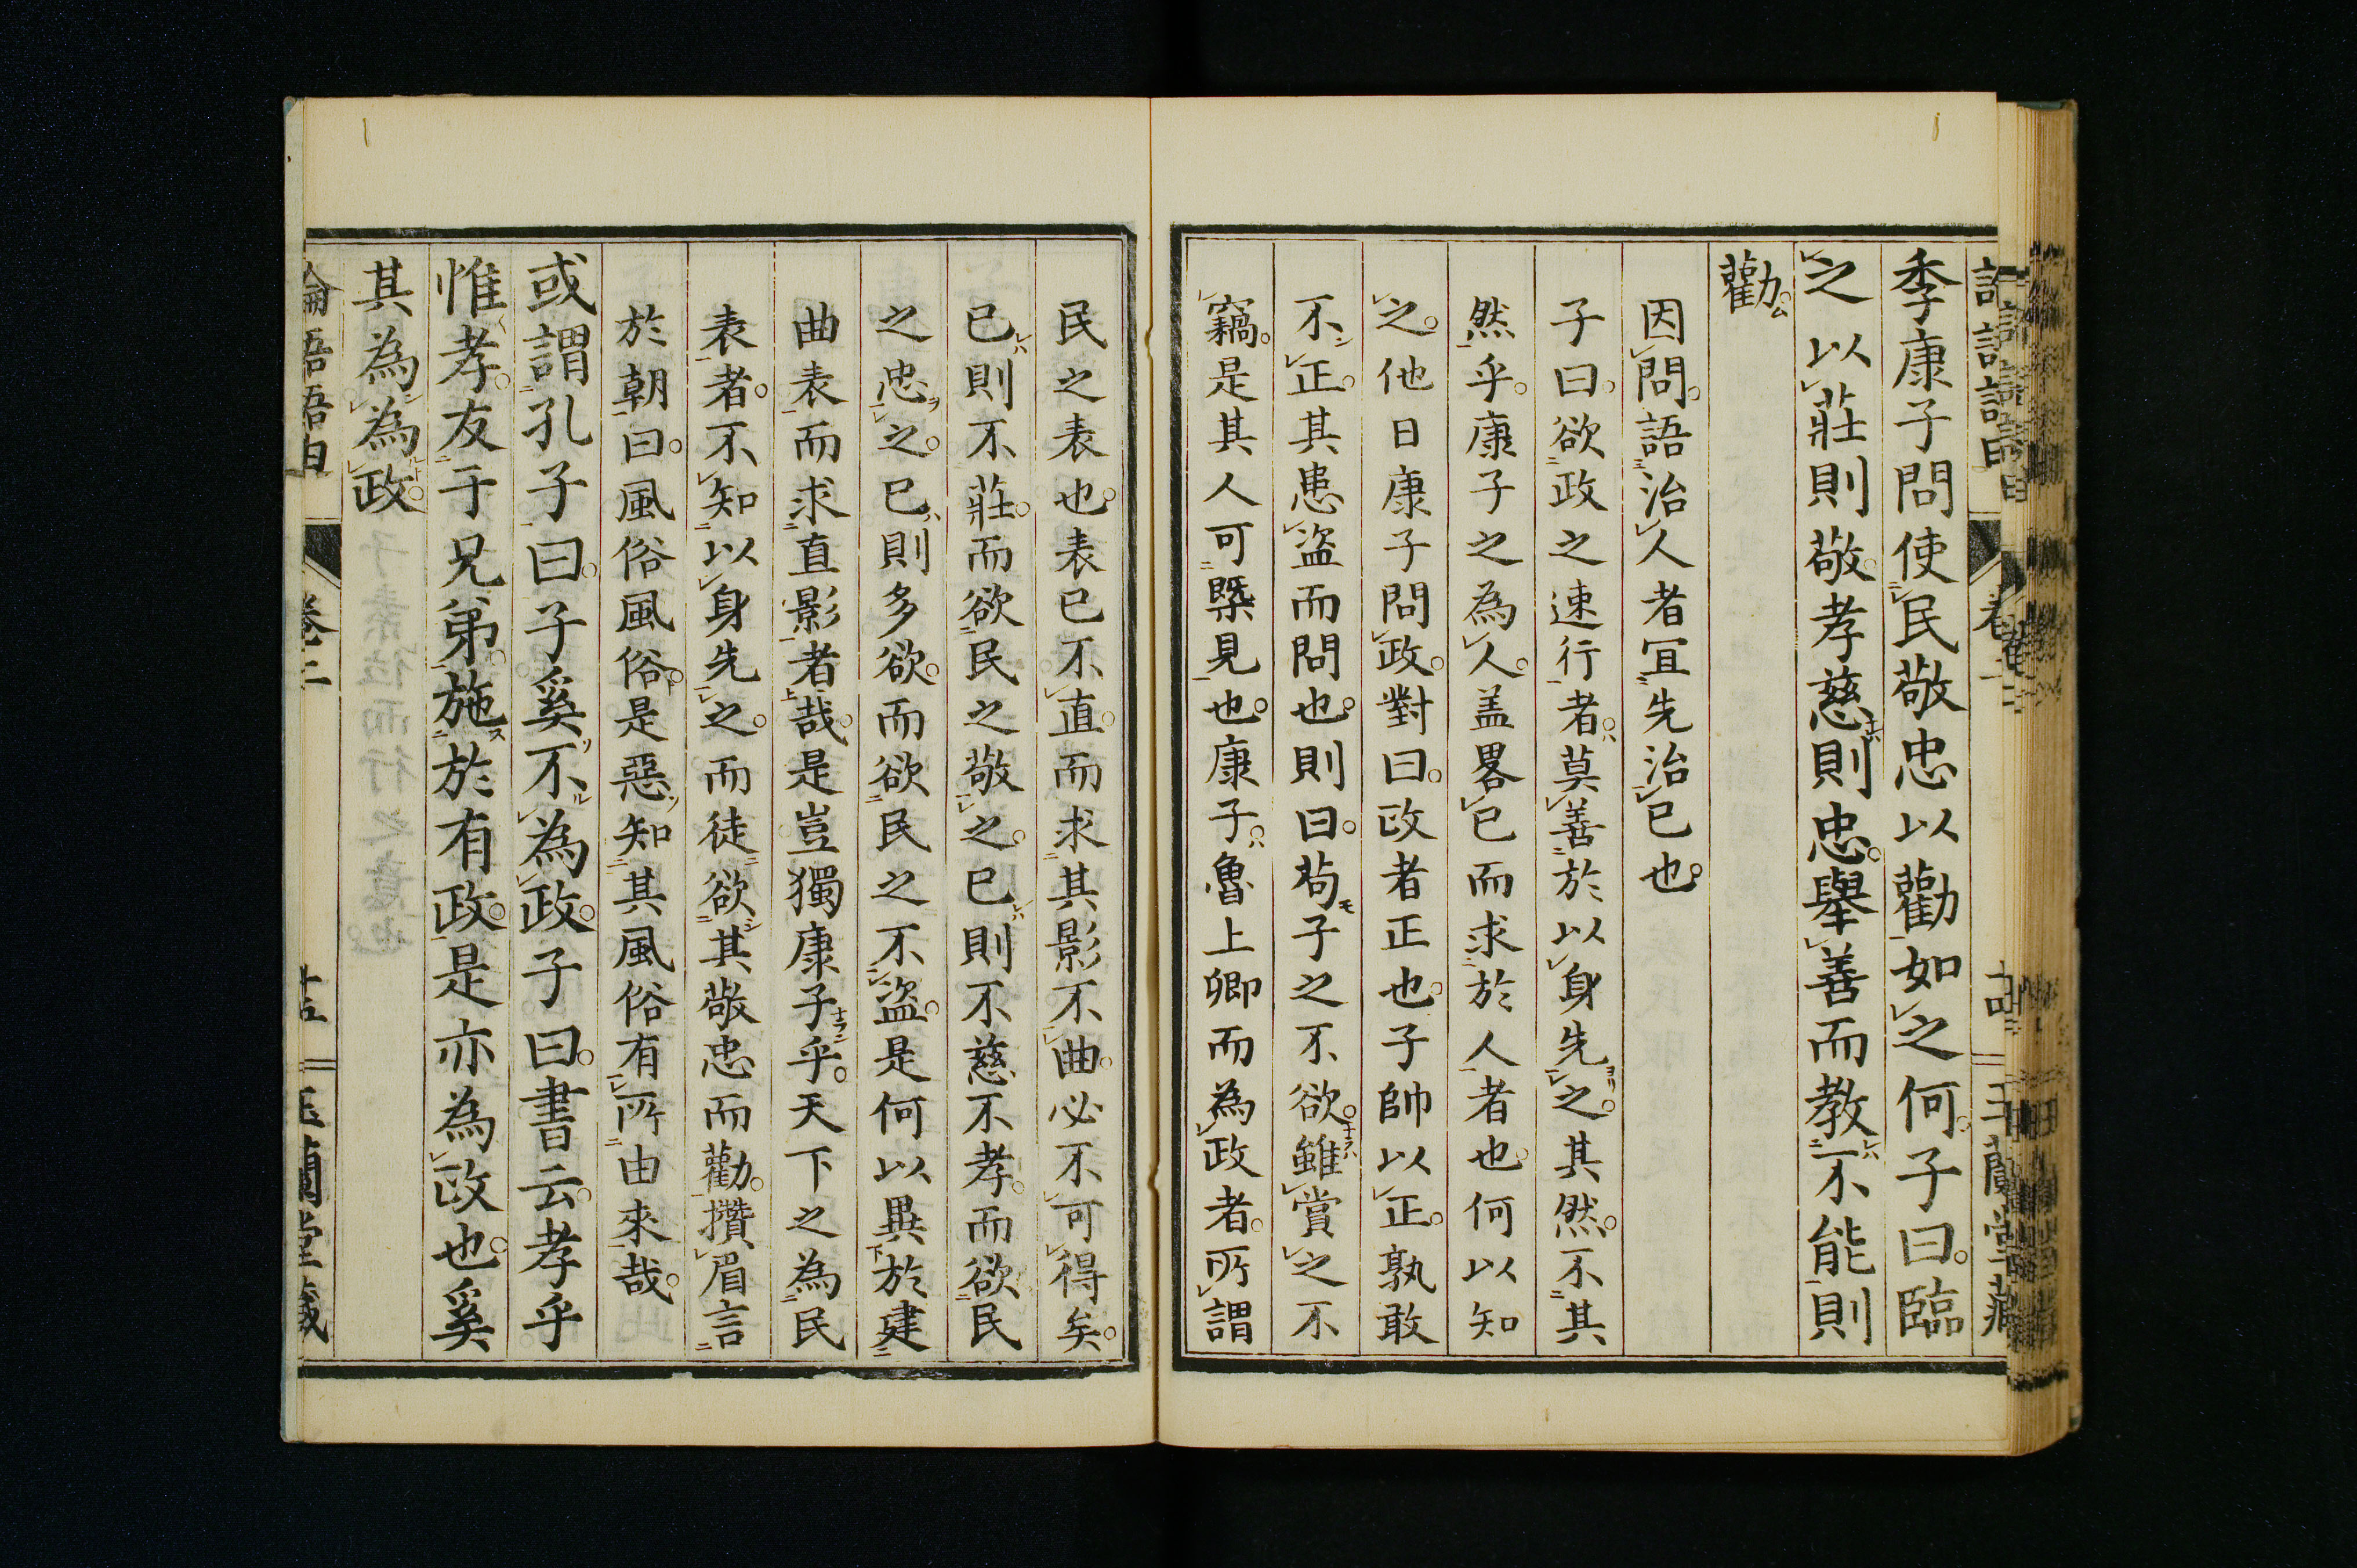 季康子問使民敬忠以勸如之何子曰臨
之以莊則敬孝慈則忠舉善而教不能則
勸
因問語治人者宜先治已也
子曰欲政之速行者莫善於以身先之其然不其
然乎康子之為人盖畧已而求於人者也何以知
之他日康子問政對曰政者正也子帥以正孰敢
不正其患盜而問也則曰苟子之不欲雖賞之不
竊是其人可槩見也康子魯上卿而為政者所謂
民之表也表已不直而求其影不曲必不可得矣
已則不莊而欲民之敬之已則不慈不孝而欲民
之忠之已則多欲而欲民之不盜是何以異於建
曲表而求直影者哉是豈獨康子乎天下之為民
表者不知以身先之而徒欲其敬忠而勸攢眉言
於朝曰風俗風俗是惡知其風俗有所由來哉
或謂孔子曰子奚不為政子曰書云孝乎
惟孝友于兄弟施於有政是亦為政也奚
其為為政
論語語由 卷二 十五 玉蘭堂藏